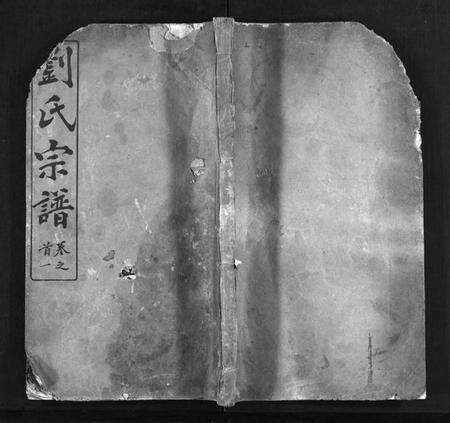 劉氏宗譜
卷之
首一